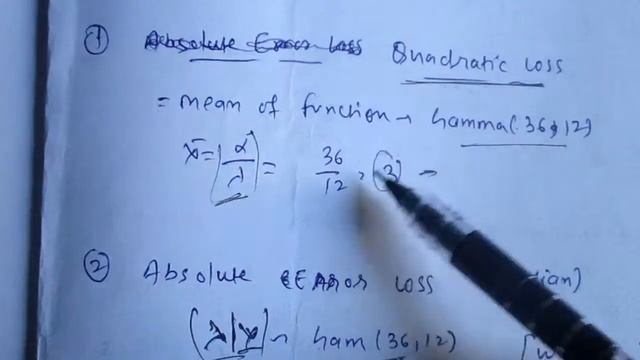 ① Absolute Error Loss Quadratic Loss
= mean of function → Gamma(36,12)
x̄ = (α/λ) = 36/12, 3 -
② Absolute Error Loss ian)
(λ|x) ~ Gam (36,12)